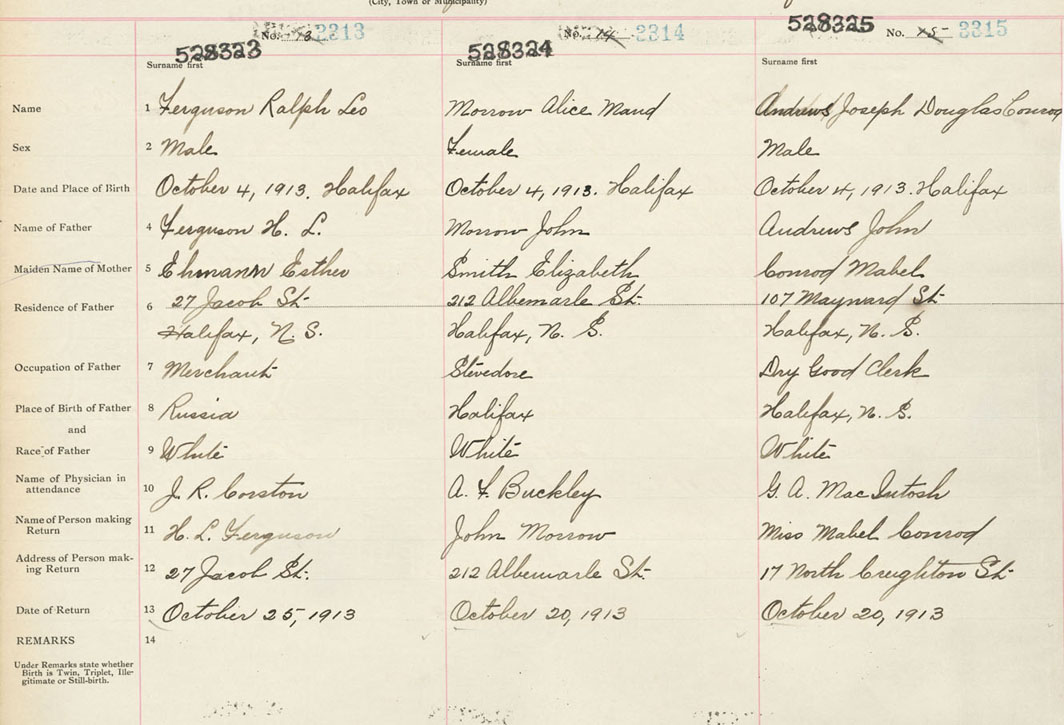 (City, Town or Municipality)
528323 No. 18 2313 528324 No. 14 2314 528325 No. 15 2315
Surname first Surname first Surname first
Name 1 Ferguson Ralph Leo Morrow Alice Maud Andrews Joseph Douglas Conrod
Sex 2 Male Female Male
Date and Place of Birth 3 October 4, 1913. Halifax October 4, 1913. Halifax October 4, 1913. Halifax
Name of Father 4 Ferguson H. L. Morrow John Andrews John
Maiden Name of Mother 5 Ehmann Esther Smith Elizabeth Conrod Mabel
Residence of Father 6 27 Jacob St. 212 Albemarle St. 107 Maynard St.
Halifax, N. S. Halifax, N. S. Halifax, N. S.
Occupation of Father 7 Merchant Stevedore Dry Good Clerk
Place of Birth of Father 8 Russia Halifax Halifax, N. S.
and
Race of Father 9 White White White
Name of Physician in
attendance 10 J. R. Corston A. F. Buckley G. A. MacIntosh
Name of Person making
Return 11 H. L. Ferguson John Morrow Miss Mabel Conrod
Address of Person mak-
ing Return 12 27 Jacob St. 212 Albemarle St. 17 North Creighton St.
Date of Return 13 October 25, 1913 October 20, 1913 October 20, 1913
REMARKS 14
Under Remarks state whether
Birth is Twin, Triplet, Ille-
gitimate or Still-birth.